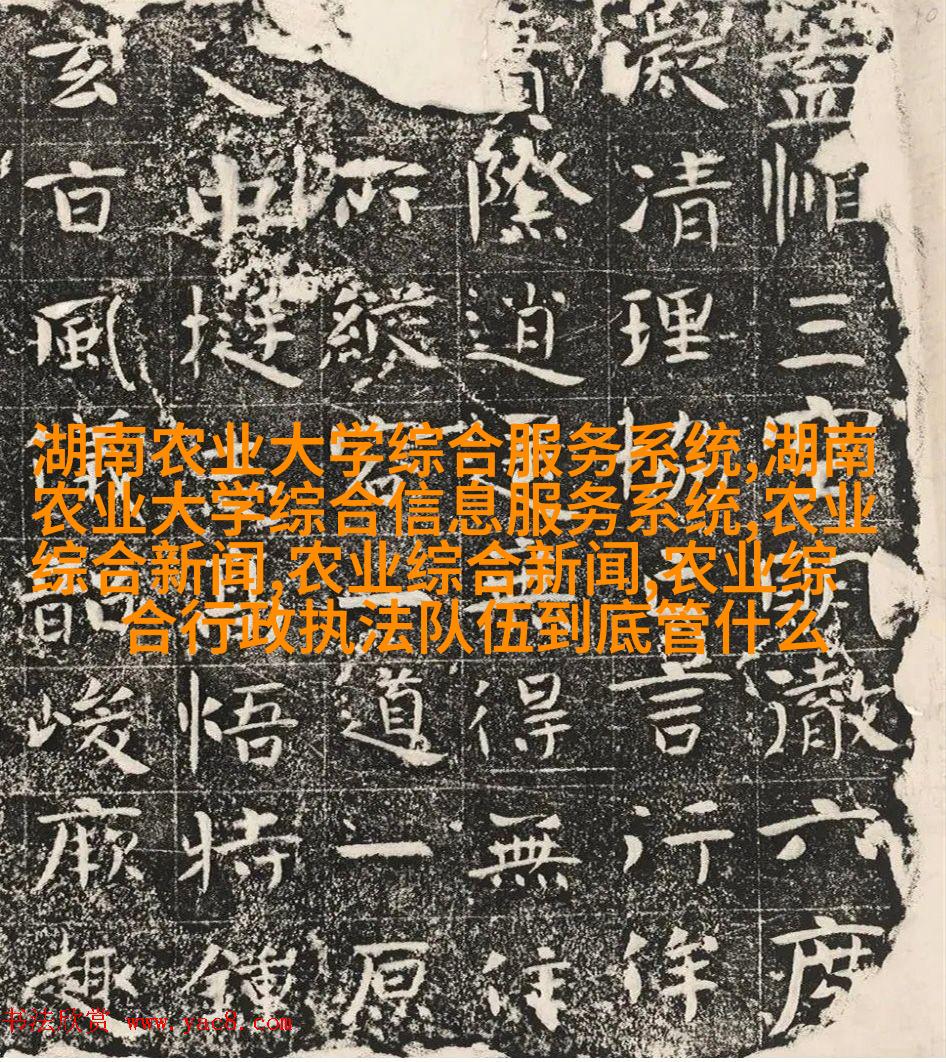 湖南农业大学综合服务系统,湖南
农业大学综合信息服务系统,农业
综合新闻,农业综合新闻,农业综
合行政执法队伍到底管什么
三澈六度
清理協言行
際道得無住
所縱道一原
入中挺悟特鍾
玄百風峻厥趣
书法欣赏 www.yac8.com